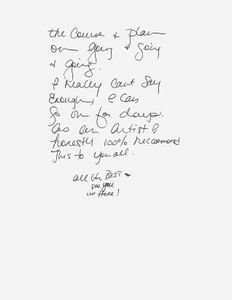 the Course & plan
on going & going
& going.
I really cant Say
Enough, I can
Go on for days.
As an Artist I
honestly 100% Recommend
This to you all.
All the Best &
see you
in there!